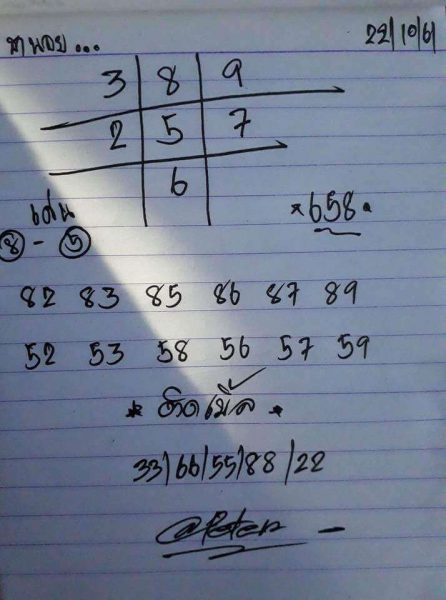 ฮานอย... 22/10/61
3 8 9
2 5 7
6
*658.
เด่น
8 - 5
82 83 85 86 87 89
52 53 58 56 57 59
* ติดเบิ้ล *
33/66/55/88/22